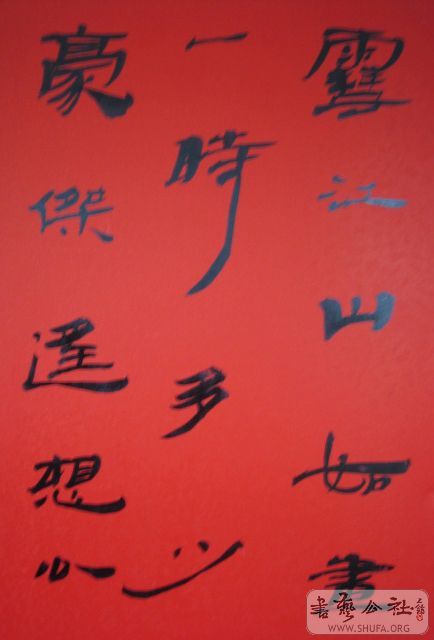 雪江山如畫
一時多少
豪傑遙想公
書藝公社
WWW.SHUFA.ORG